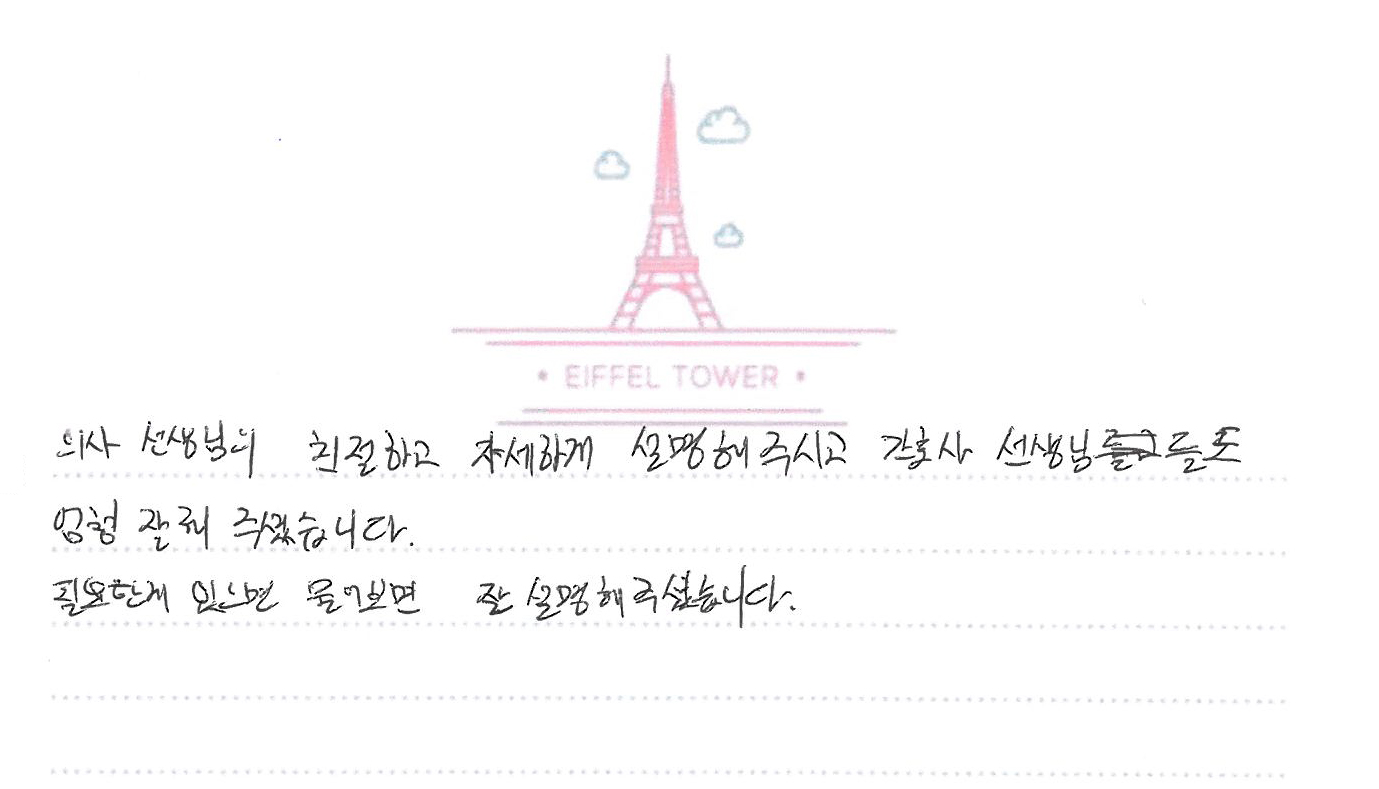 • EIFFEL TOWER •
의사 선생님의 친절하고 자세하게 설명해 주시고 간호사 선생님들도
엄청 잘해 주셨습니다.
필요한게 있으면 물어보면 잘 설명해주셨습니다.